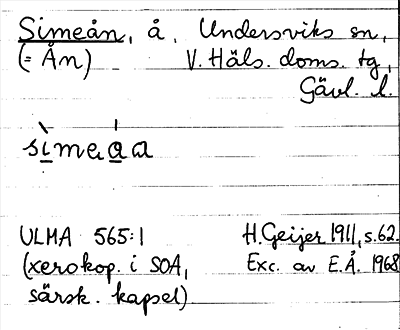 Simeån, å, Undersviks sn,
(= Ån) V. Häls. doms. tg,
Gävl. l.
sìmeaa
ULMA 565:1 H. Geijer 1911, s. 62.
(xerokop. i SOA, Exc. av E.Å. 1968
särsk. kapsel)